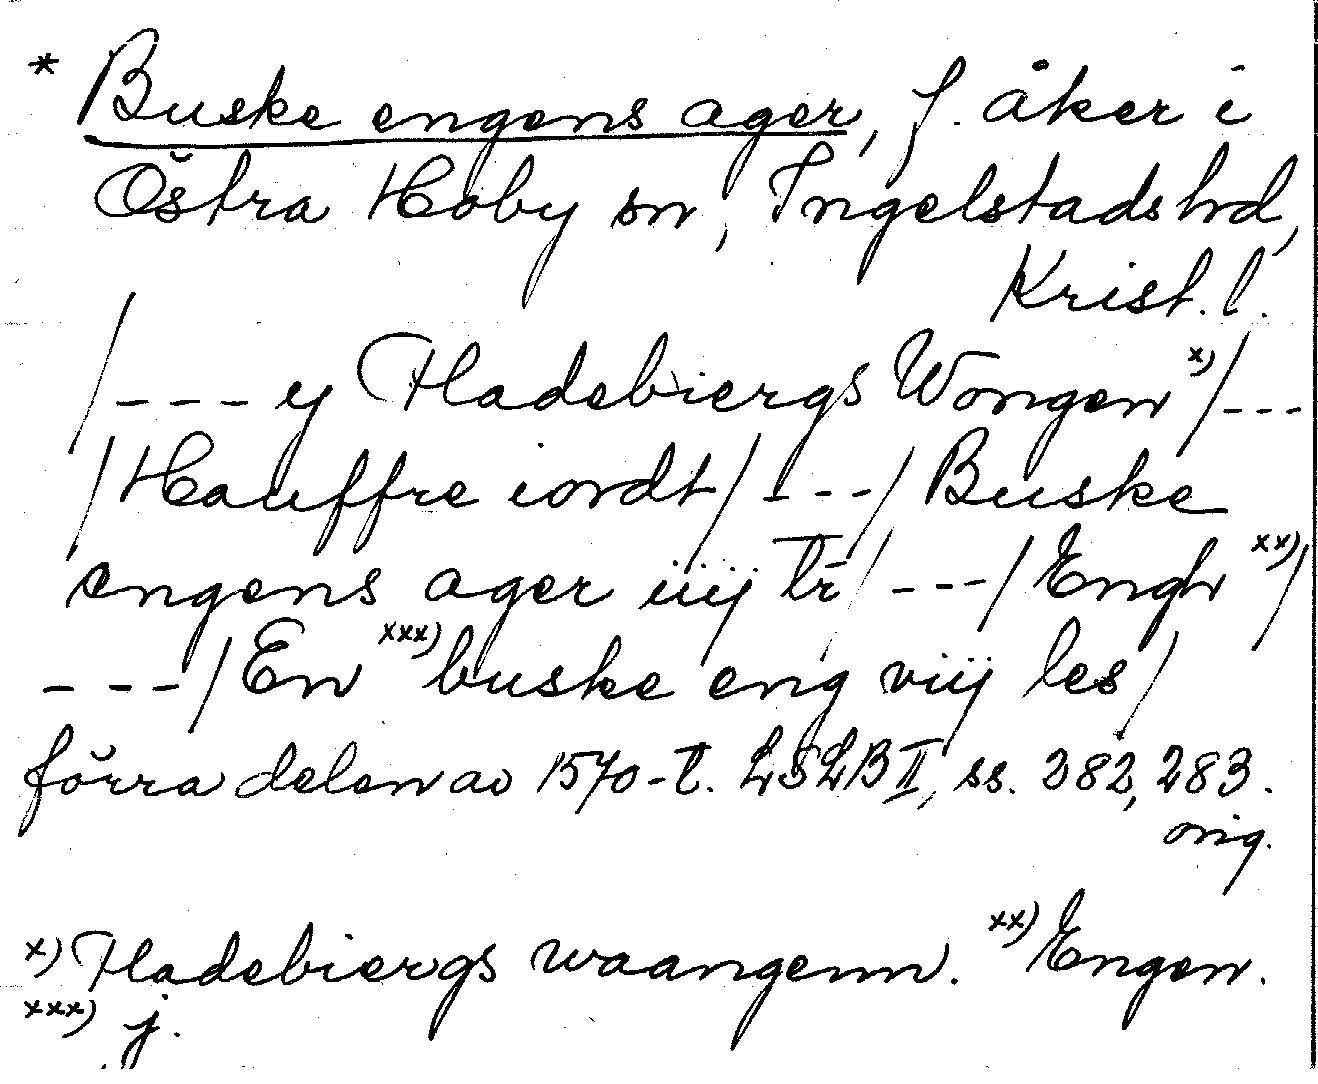 * Buske engens ager, f. åker i
Östra Hoby sn, Ingelstads hrd,
Krist. l.
/--- y Fladebiergs Wongen x)/---
/Hauffre iordt/---/Buske
engens ager iiij tr/---/Engh xx)/
---/En xxx) buske eng viij les/
förra delen av 1570-t. LSLB II, ss. 282, 283.
orig.
x) Fladebiergs waangenn. xx) Engen.
xxx) j.